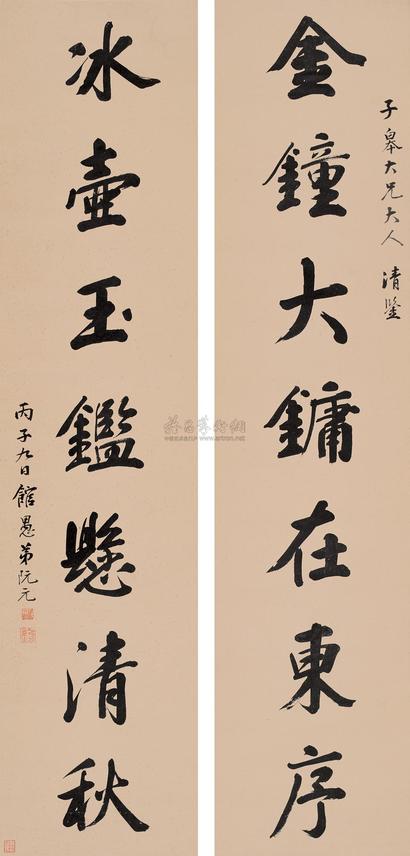 子皋大兄大人 清鉴
金鐘大鏞在東序
冰壺玉鑑懸清秋
丙子九日館愚弟阮元